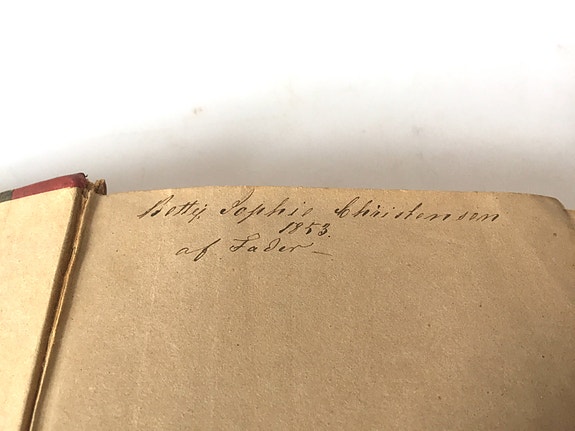 Betty Sophie Christensen
1853.
af Fader